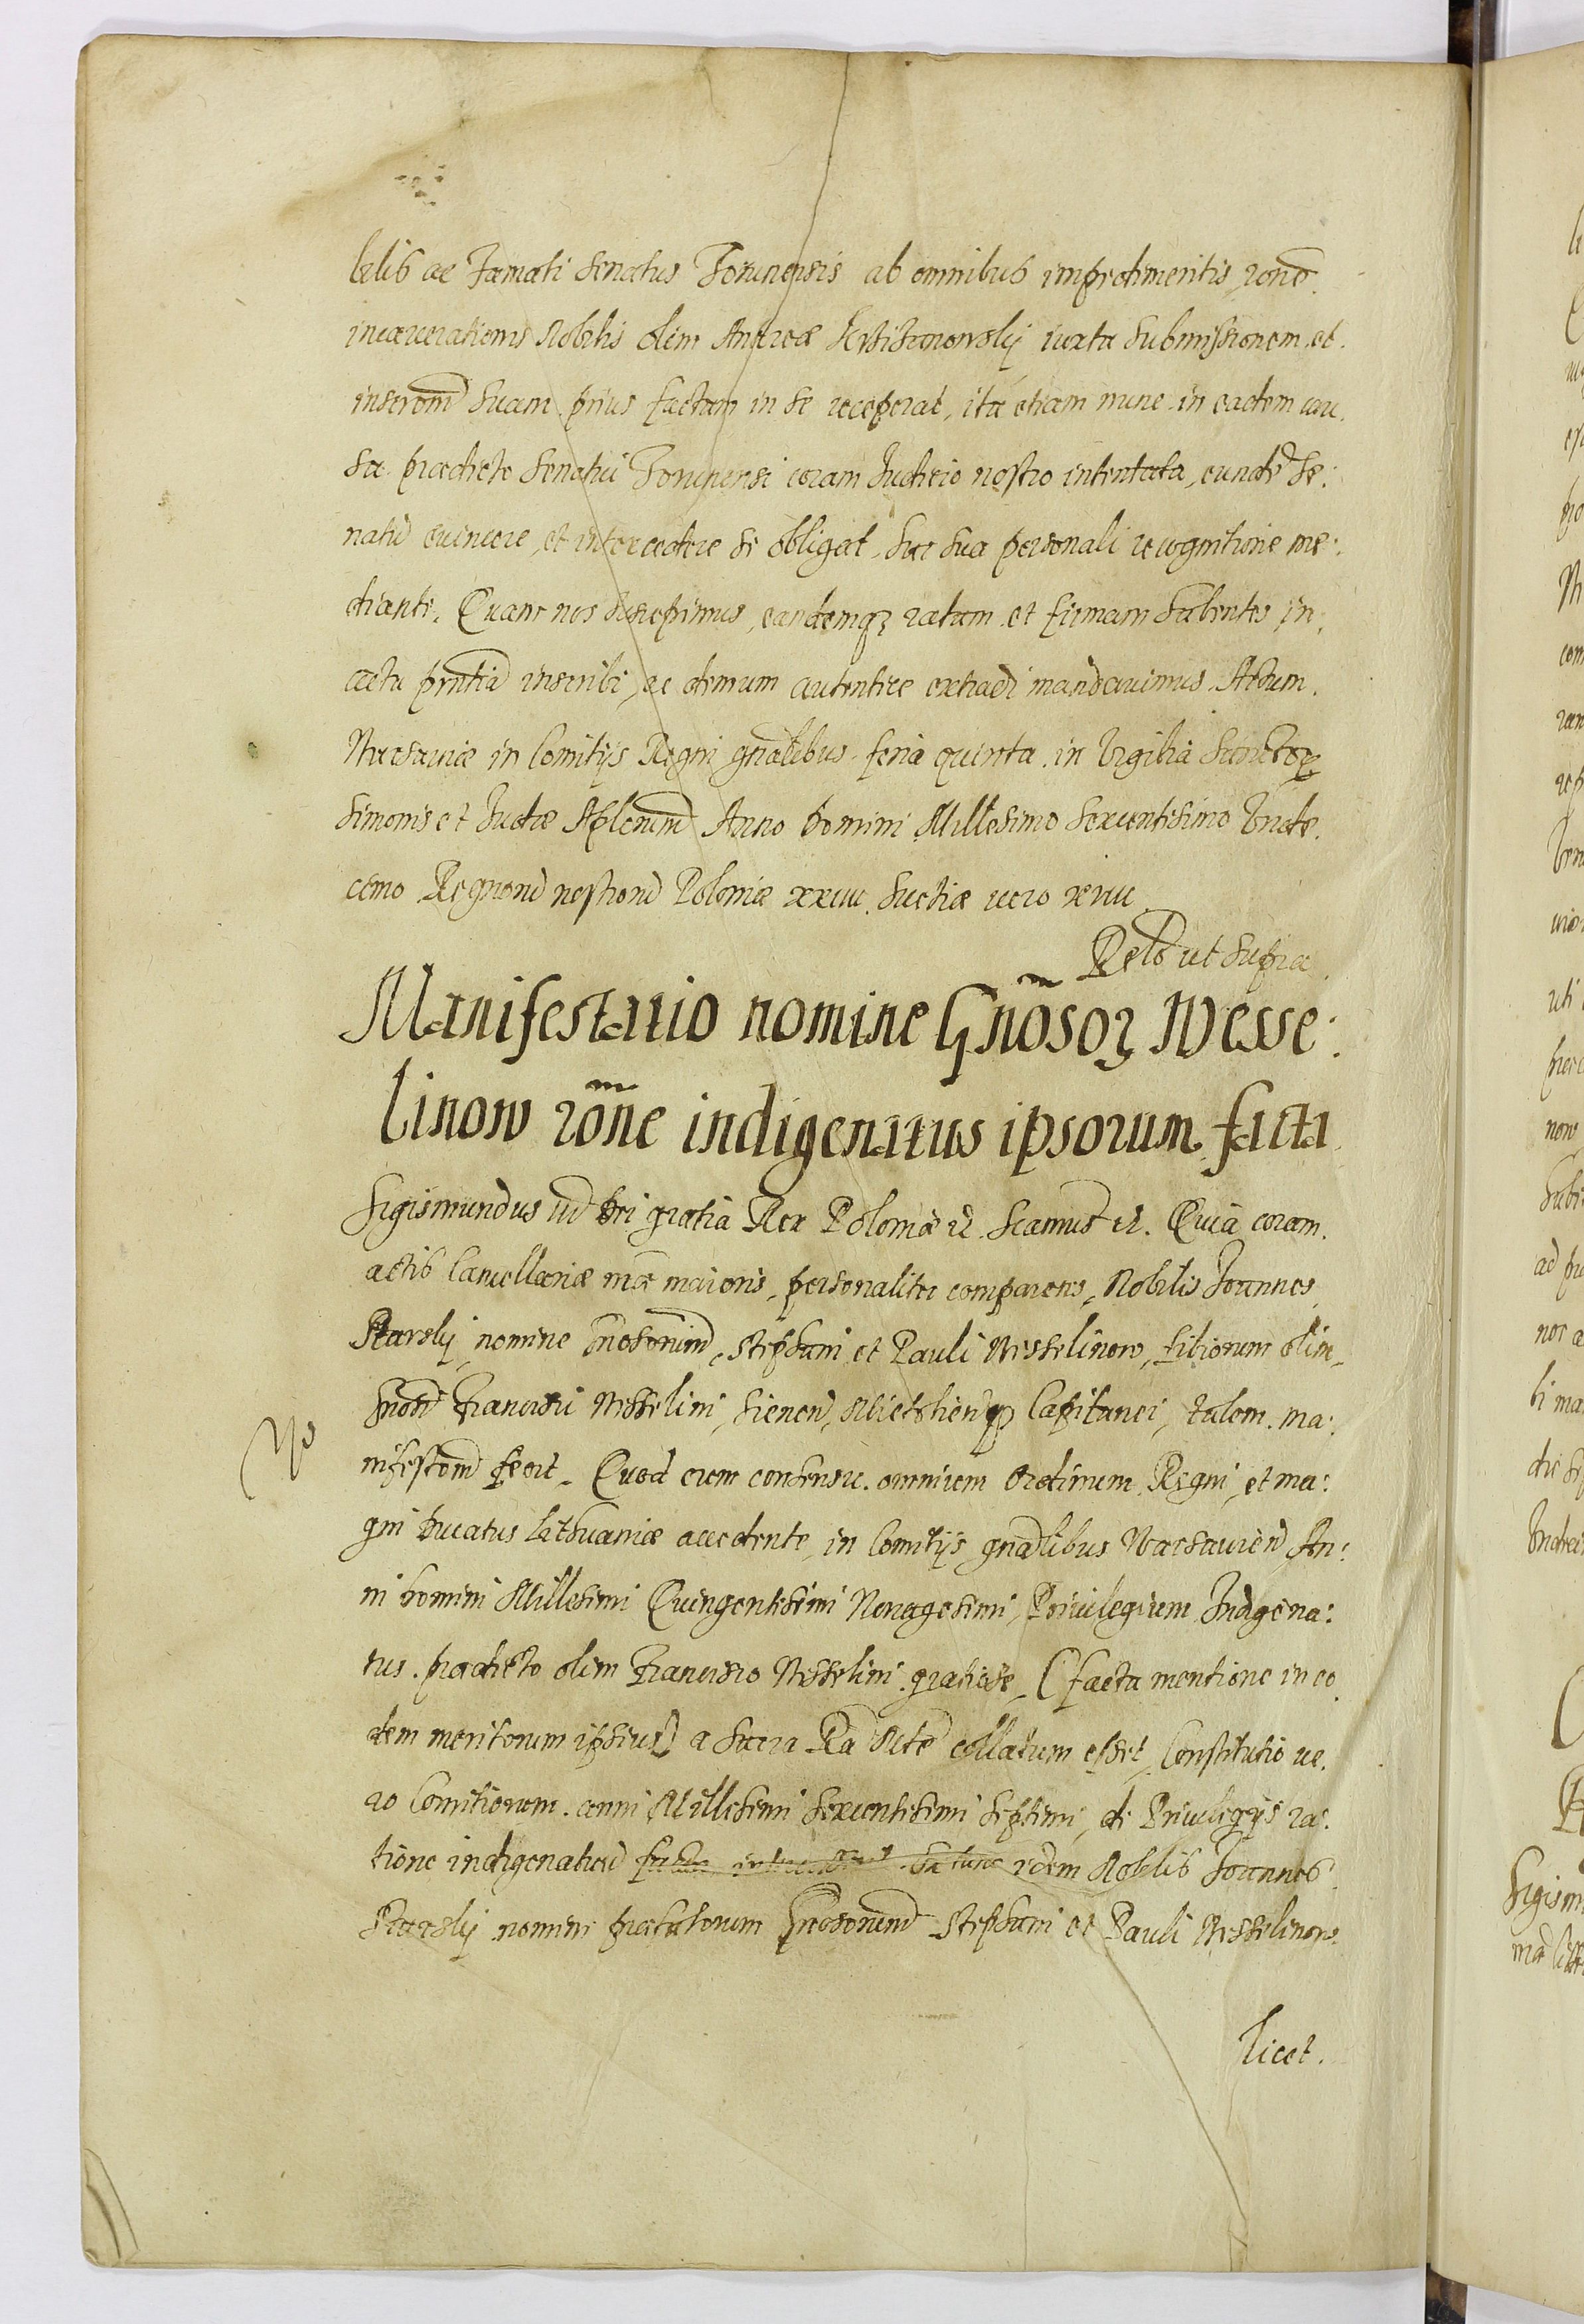 bilis ac Famati Senatus Torunensis ab omnibus impedimentis, rone
incarcerationis Nobilis olim Andreæ iuxta submissionem et
inscrōm suam prius factam in se receperat, ita etiam nunc in eadem cau
sa prædicto Senatui Torunensi coram Iudicio nostro intentata, eundē Se:
natū evincere, et intercedere se obligat hac sua personali recognitione me:
diante. Quam nos suscepimus, eandemq3 ratam et firmam habentes in
acta prntiā inscribi, ac demum autentice extradi mandavimus. Actum
Warsaviæ in Comitijs Regni gnalibus feria quinta in Vigilia Sanctor
Simonis et Iudæ Aplorum Anno Domini Millesimo Sexcentesimo Vnde
cimo Regnorū nostrorū Poloniæ xxiiii Suetiæ vero xviii
Relō ut supra
Manifestatio nomine Gnosor Wesse:
linow rōne indigenatus ipsorum facta
Sigismundus iii Dei gratia Rex Poloniæ &. Significamus &. Quia coram
actis Cancellariæ nræ maioris, personaliter comparens, Nobilis Ioannes
Starsky nomine Gnosorum, Stephani et Pauli Wesselinow, filiorum olim
Gnosi Francisci Wesselini, Capitanei, talem ma:
nifestōm fecit. Quod cum consensu omnium Ordinum Regni, et ma:
gni Ducatus Lithuaniæ accedente, in Comitijs gnalibus Warsavien An:
ni Domini Millesimi Quingentesimi Nonagesimi, Privilegium Indigena:
tus prædicto olim Francisco Wesselini gratiose, (facta mentione in eo
dem meritorum ipsius) a Sacra Ra Mte collatum esset, Constitutio ve
ro Comitiorum anni Millesimi Sexcentesimi Septimi, de Privilegijs ra:
tione indigenatus idem Nobilis Ioannes
Starsky nomine præfatorum Gnosorum Stephani et Pauli Wesselinow
licet.